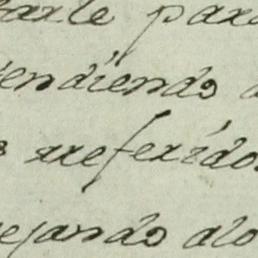 tarle para
endiendo a
s rreferidos
ejando alo